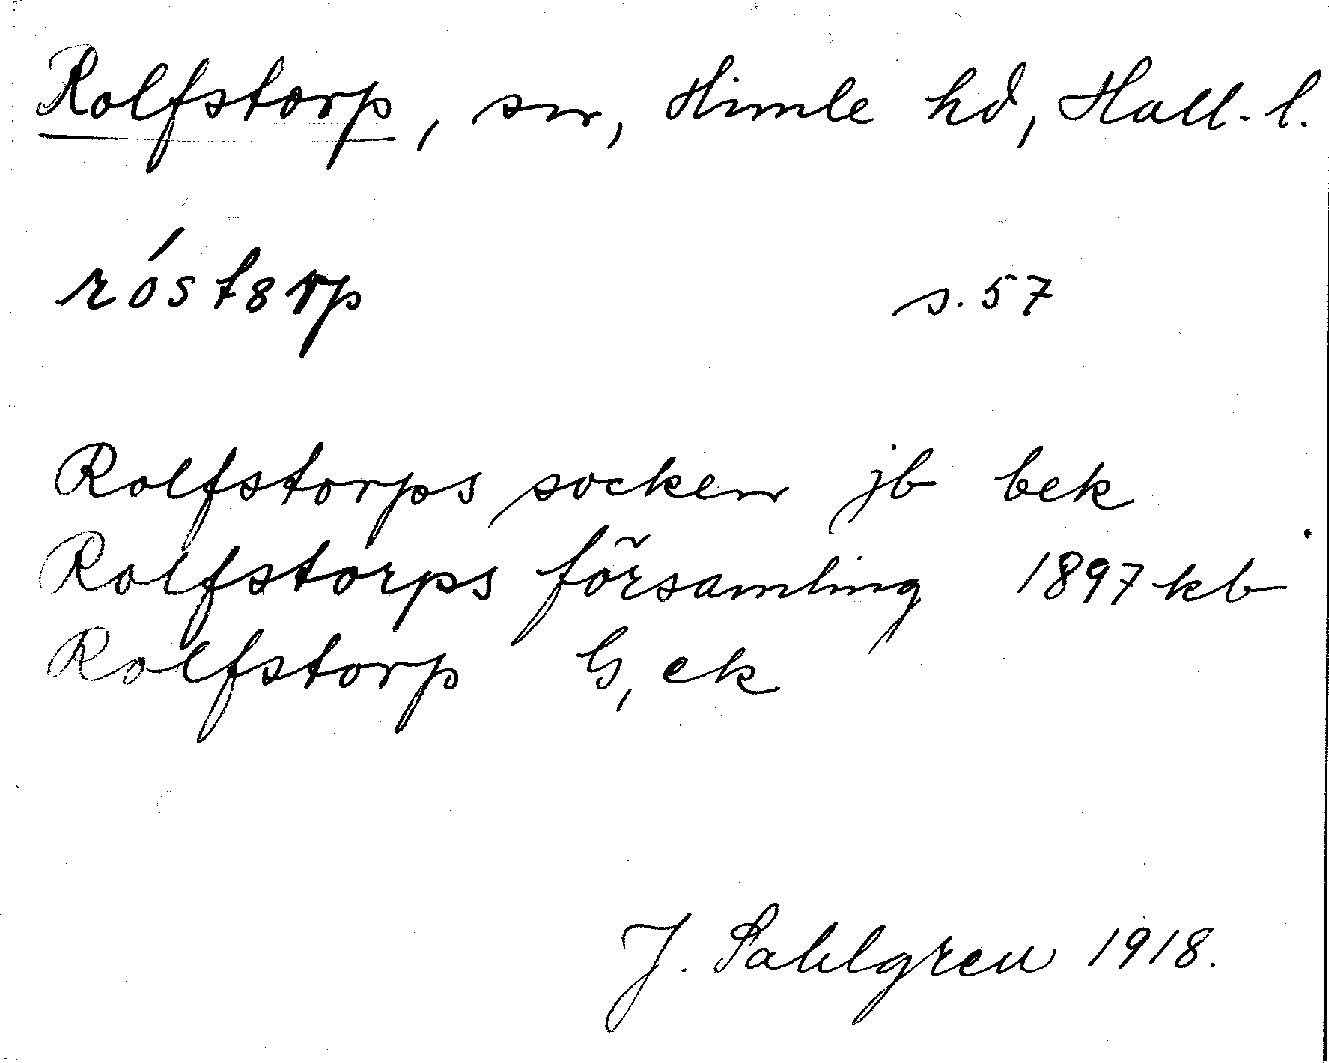 Rolfstorp, sn, Himle hd, Hall. l.
róst8rp s. 57
Rolfstorps socken jb bek
Rolfstorps församling 1897 kb
Rolfstorp G, ek
J. Sahlgren 1918.